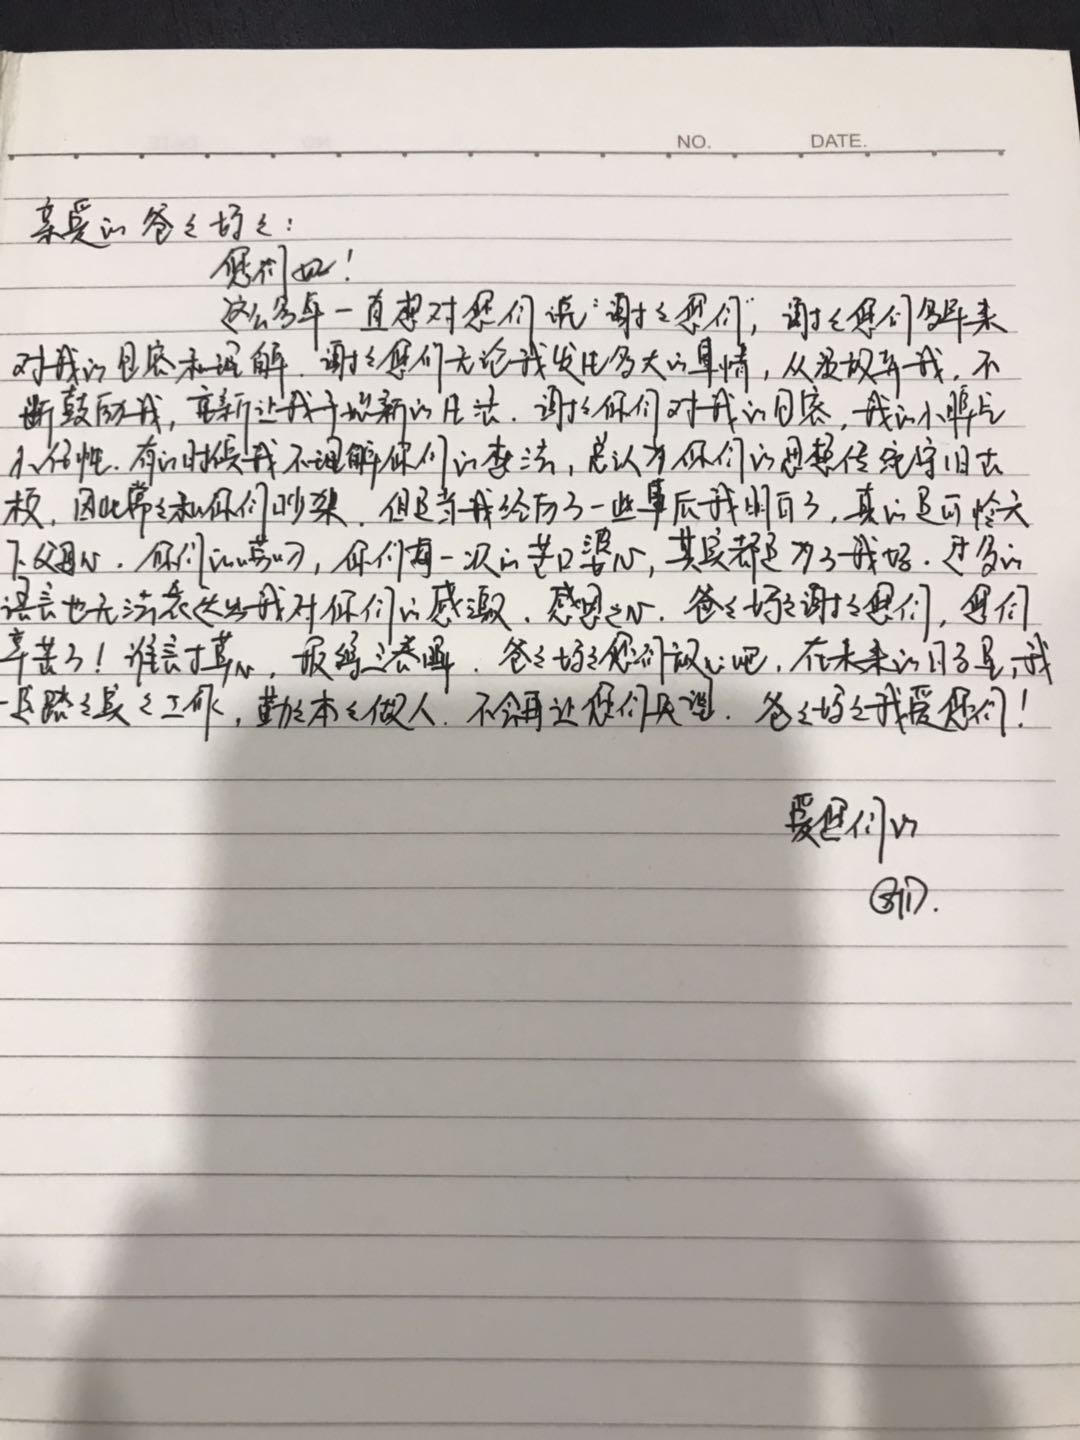 NO. DATE.
亲爱的爸々妈々:
您们好!
这么多年一直想对您们说"谢々您们", 谢々您们多年来
对我的包容和理解. 谢々您们无论我发生多大的事情, 从没放弃我, 不
断鼓励我, 重新让我予以新的生活. 谢々你们对我的包容, 我的小脾气
小任性. 有的时候我不理解你们的 , 总认为你们的思想传统守旧古
板, 因此常々和你们吵架. 但是当我经历了一些事后我明白了, 真的是可怜天
下父母心. 你们的 , 你们每一次的苦口婆心, 其实都是为了我好. 过多的
语言也无法表达出我对你们的感激. 感恩之心. 爸々妈々谢々您们, 您们
辛苦了! 谁言寸草心, 报得三春晖. 爸々妈々您们放心吧, 在未来的日子里, 我
一定踏々实々工作, 勤々本々做人. 不会再让您们失望. 爸々妈々我爱您们!
爱您们的